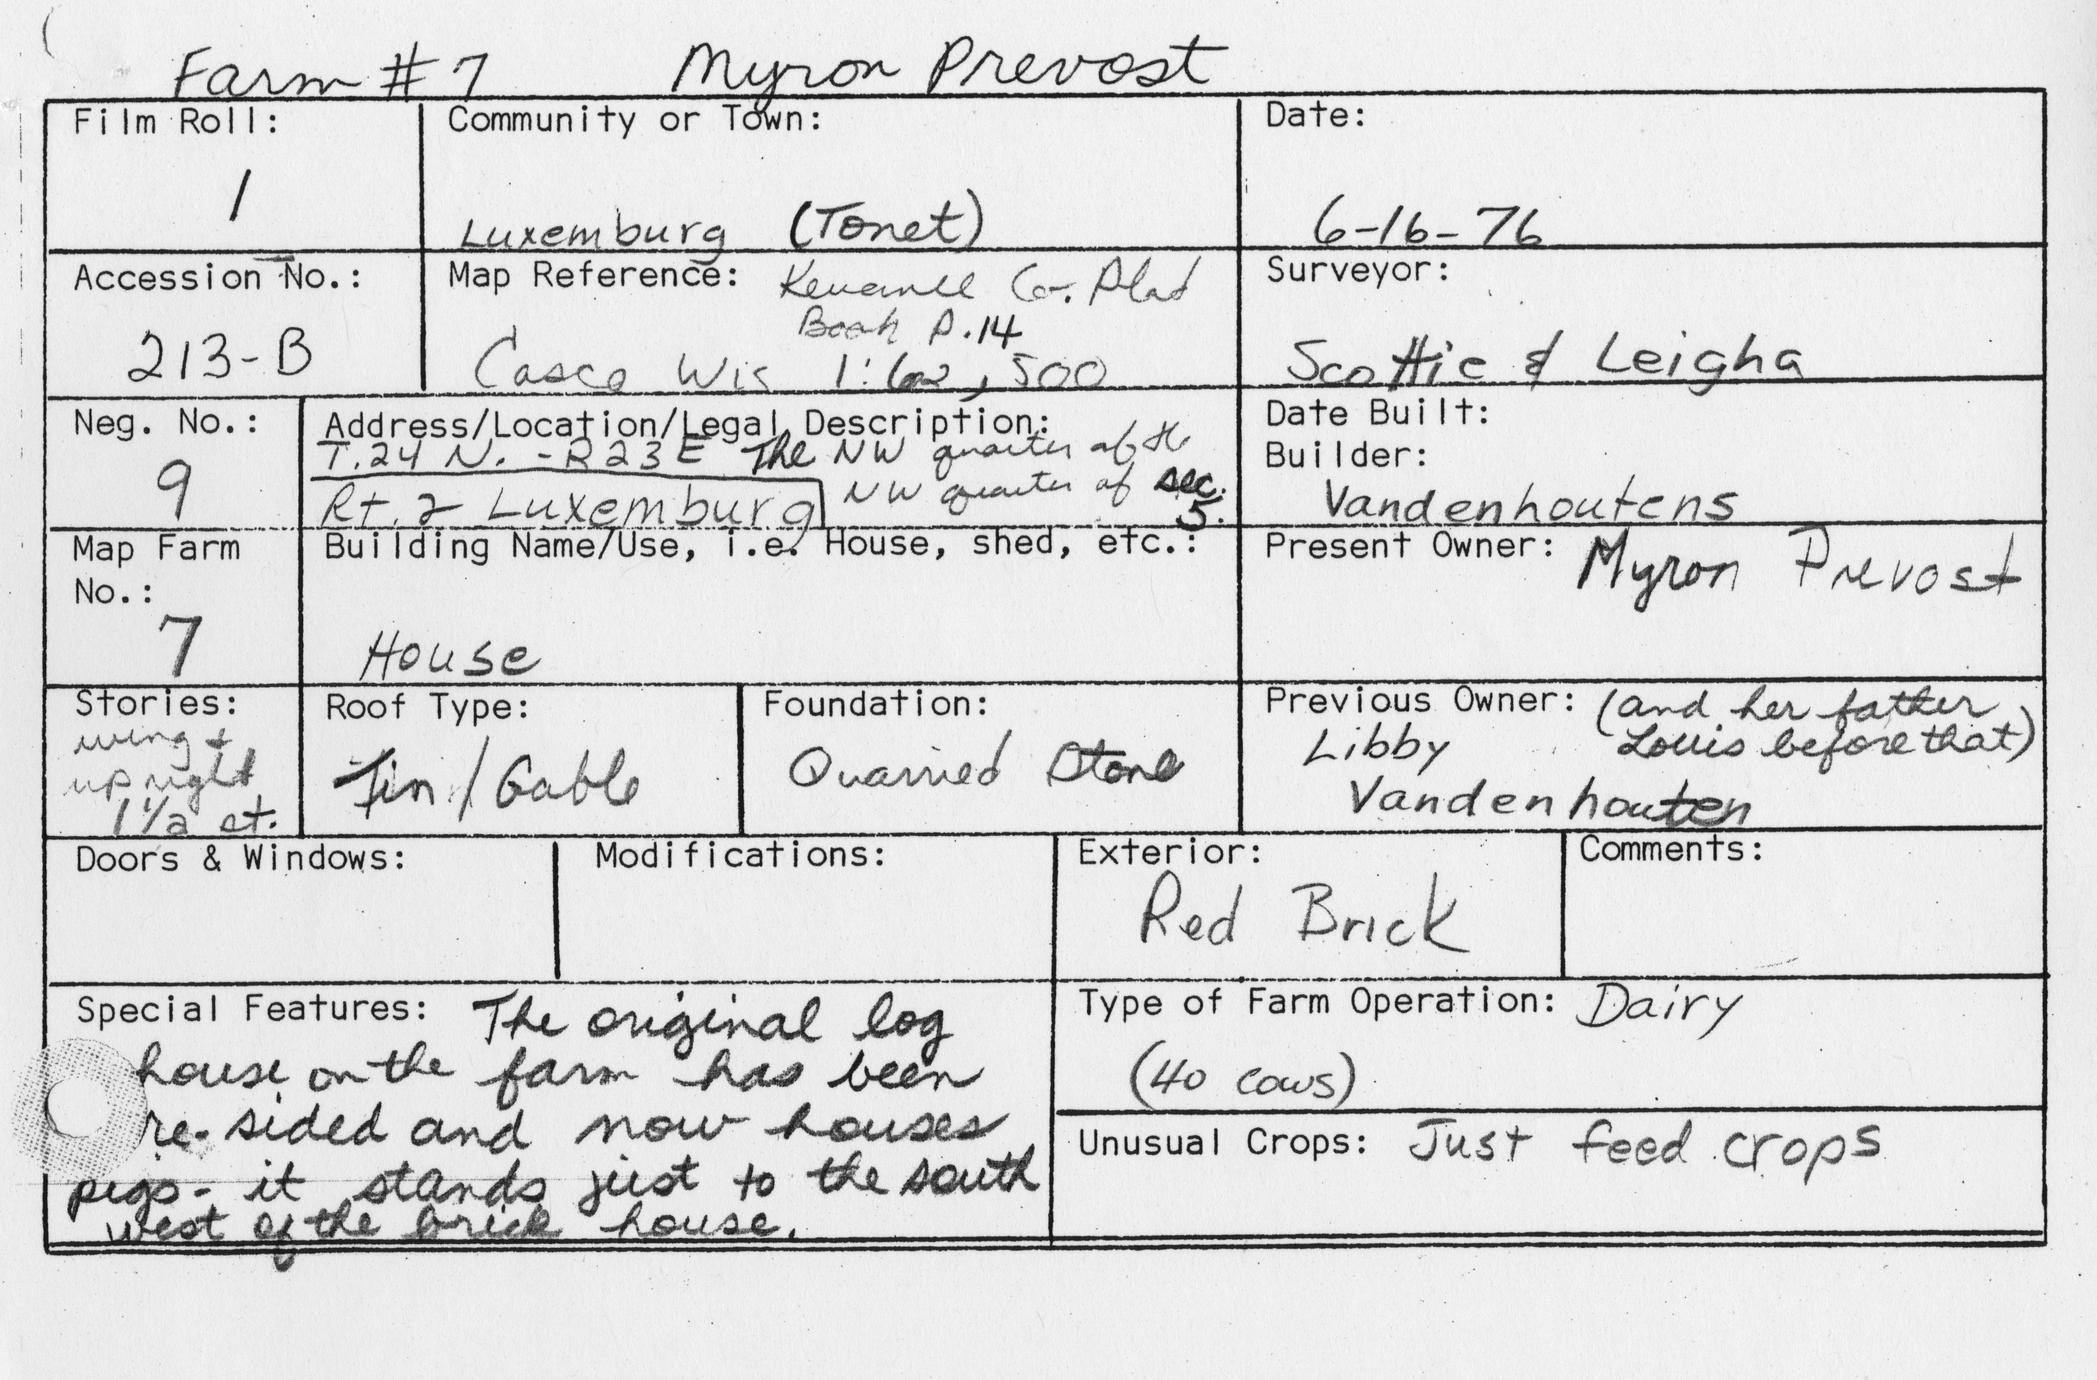 Farm # 7 Myron Prevost
Film Roll:
1
Community or Town:
Luxemburg (Tonet)
Date:
6-16-76
Accession No.:
213-B
Map Reference: Kewaunee Co. Plat
Book P.14
Casco Wis 1:62,500
Surveyor:
Scottie & Leigha
Neg. No.:
9
Address/Location/Legal Description:
T.24 N. - R 23 E The NW quarter of the
NW quarter of sec.
5.
Rt. 2 Luxemburg
Date Built:
Builder:
Vandenhoutens
Map Farm
No.:
7
Building Name/Use, i.e. House, shed, etc.:
House
Present Owner: Myron Prevost
Stories:
wing +
upright
1 1/2 st.
Roof Type:
Tin / Gable
Foundation:
Quarried Stone
Previous Owner: (and her father
Louis before that)
Libby
Vandenhouten
Doors & Windows:
Modifications:
Exterior:
Red Brick
Comments:
Special Features: The original log
house on the farm has been
re-sided and now houses
pigs - it stands just to the south
west of the brick house.
Type of Farm Operation: Dairy
(40 cows)
Unusual Crops: Just feed crops